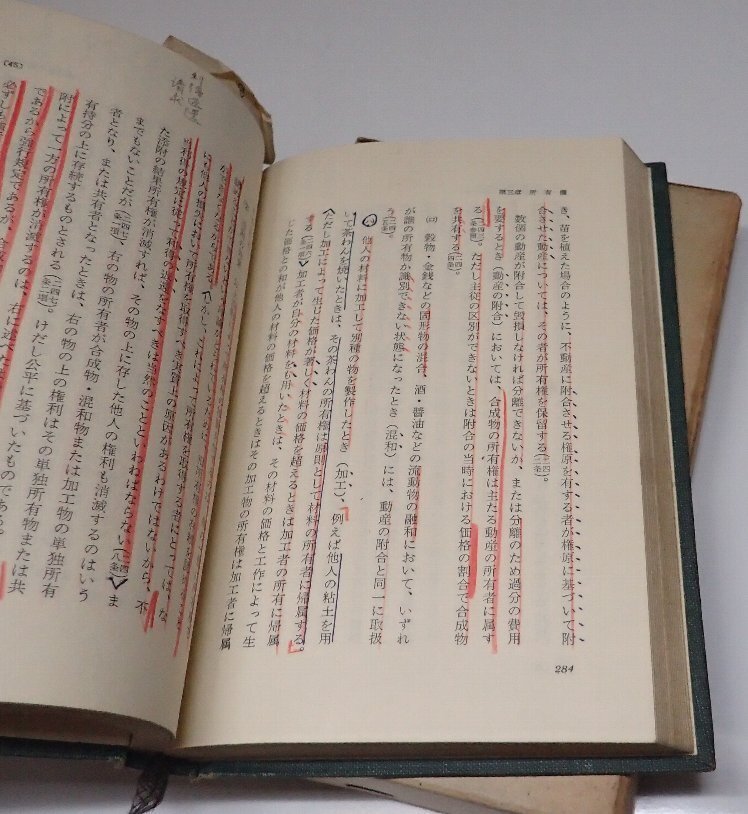 第三章 所有権
き、苗を植えた場合のように、不動産に附合させる権原を有する者が権原に基づいて附
合させた動産については、その者が所有権を保留する(二四二条)。
数個の動産が附合して毀損しなければ分離できないか、または分離のため過分の費用
を要するとき(動産の附合)においては、合成物の所有権は主たる動産の所有者に属す
る(二四三条)。ただし主従の区別ができないときは附合の当時における価格の割合で合成物
を共有する(二四四条)。
(ロ) 穀物・金銭などの固形物の混合、酒・醤油などの流動物の融和において、いずれ
が誰の所有物か識別できない状態になったとき(混和)には、動産の附合と同一に取扱
う(二四五条)。
他人の材料に加工して別種の物を製作したとき(加工)、例えば他人の粘土を用
いて茶わんを焼いたときは、その茶わんの所有権は原則として材料の所有者に帰属する。
ただし加工によって生じた価格が著しく材料の価格を超えるときは加工者の所有に帰属
する(二四六条一項)。加工者が自分の材料をも用いたときは、その材料の価格と工作によって生
じた価格との和が他人の材料の価格を超えるときはその加工物の所有権は加工者に帰属
284
(45)
にも他人の損失において所有権を取得すべき実質上の原因があるわけではないから、不
当利得の規定に従って利得の返還をなすべきは当然のことといわねばならない(二四八条)。ま
た添附の結果所有権が消滅すれば、その物の上に存した他人の権利も消滅するのはいう
までもないことだが(二四七条一項)、右の物の所有者が合成物・混和物または加工物の単独所有
者となり、または共有者となったときは、右の物の上の権利はその単独所有物または共
有持分の上に存続するものとされる(二四七条二項)。けだし公平に基づいたものである。
附によって一方の所有権が消滅するのは、右に述べた
であるから強行規定であるが、合成
必ずしも強